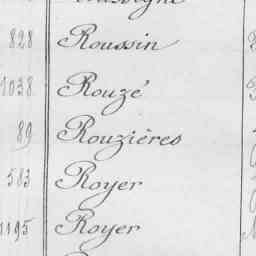 828 Roussin
1038 Rouzé
89 Rouzières
583 Royer
1195 Royer